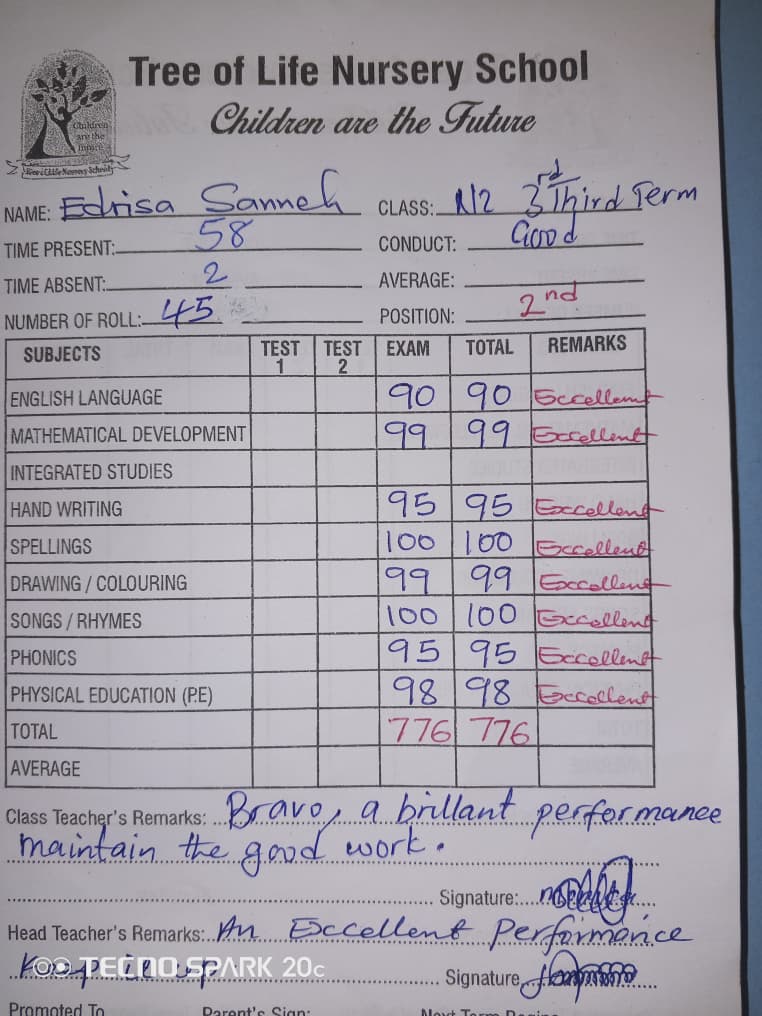 Tree of Life Nursery School
Children are the Future
Children
are the
future
Tree of Life Nursery School
NAME: Edrisa Sanneh CLASS: N2 3rd Third Term
TIME PRESENT: 58 CONDUCT: Good
TIME ABSENT: 2 AVERAGE:
NUMBER OF ROLL: 45 POSITION: 2nd
SUBJECTS TEST 1 TEST 2 EXAM TOTAL REMARKS
ENGLISH LANGUAGE 90 90 Excellent
MATHEMATICAL DEVELOPMENT 99 99 Excellent
INTEGRATED STUDIES
HAND WRITING 95 95 Excellent
SPELLINGS 100 100 Excellent
DRAWING / COLOURING 99 99 Excellent
SONGS / RHYMES 100 100 Excellent
PHONICS 95 95 Excellent
PHYSICAL EDUCATION (P.E) 98 98 Excellent
TOTAL 776 776
AVERAGE
Class Teacher's Remarks: Bravo, a brillant performance
maintain the good work.
Signature:
Head Teacher's Remarks: An Excellent Performance
Keep it up Signature
TECNO SPARK 20C
Promoted To Parent's Sign: Next Term Begins